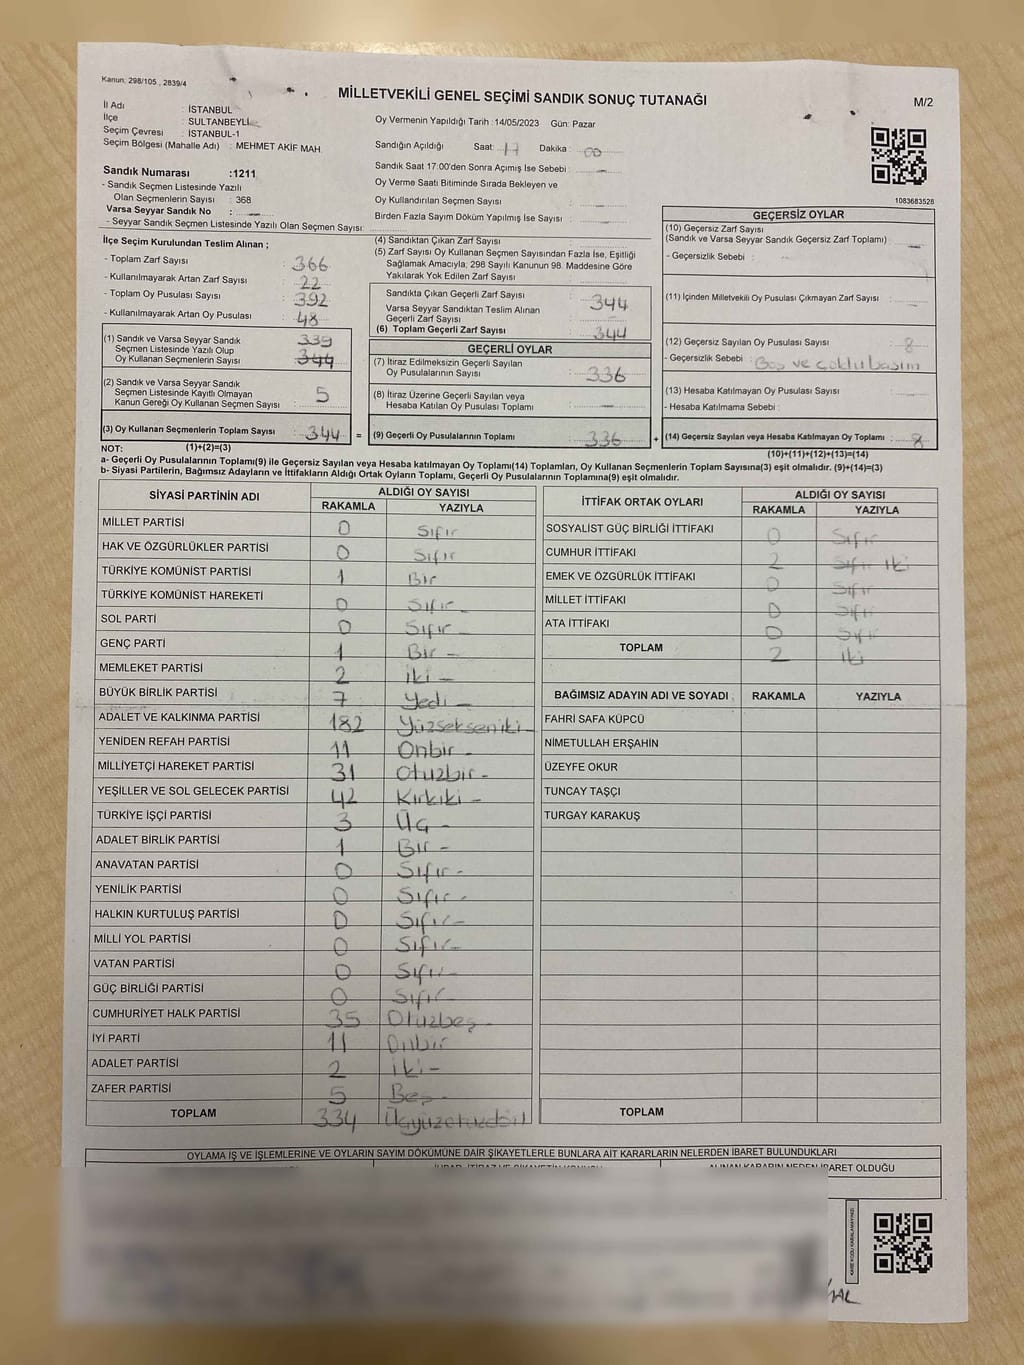 Kanun: 298/105 , 2839/4
MİLLETVEKİLİ GENEL SEÇİMİ SANDIK SONUÇ TUTANAĞI
M/2
İl Adı : İSTANBUL
İlçe : SULTANBEYLİ
Seçim Çevresi : İSTANBUL-1
Seçim Bölgesi (Mahalle Adı) : MEHMET AKİF MAH.
Oy Vermenin Yapıldığı Tarih : 14/05/2023 Gün: Pazar
Sandığın Açıldığı Saat: 17 Dakika : 00
Sandık Saat 17:00'den Sonra Açımış İse Sebebi : —
Oy Verme Saati Bitiminde Sırada Bekleyen ve
Oy Kullandırılan Seçmen Sayısı : —
Birden Fazla Sayım Döküm Yapılmış İse Sayısı : —
1083683528
Sandık Numarası :1211
- Sandık Seçmen Listesinde Yazılı
Olan Seçmenlerin Sayısı : 368
Varsa Seyyar Sandık No : —
- Seyyar Sandık Seçmen Listesinde Yazılı Olan Seçmen Sayısı:
İlçe Seçim Kurulundan Teslim Alınan ;
- Toplam Zarf Sayısı : 366
- Kullanılmayarak Artan Zarf Sayısı : 22
- Toplam Oy Pusulası Sayısı : 392
- Kullanılmayarak Artan Oy Pusulası : 48
(1) Sandık ve Varsa Seyyar Sandık
Seçmen Listesinde Yazılı Olup
Oy Kullanan Seçmenlerin Sayısı : 339
344
(2) Sandık ve Varsa Seyyar Sandık
Seçmen Listesinde Kayıtlı Olmayan
Kanun Gereği Oy Kullanan Seçmen Sayısı : 5
(3) Oy Kullanan Seçmenlerin Toplam Sayısı : 344 =
(1)+(2)=(3)
(4) Sandıktan Çıkan Zarf Sayısı :
(5) Zarf Sayısı Oy Kullanan Seçmen Sayısından Fazla İse, Eşitliği
Sağlamak Amacıyla, 298 Sayılı Kanunun 98. Maddesine Göre
Yakılarak Yok Edilen Zarf Sayısı :
Sandıkta Çıkan Geçerli Zarf Sayısı : 344
Varsa Seyyar Sandıktan Teslim Alınan
Geçerli Zarf Sayısı :
(6) Toplam Geçerli Zarf Sayısı : 344
GEÇERLİ OYLAR
(7) İtiraz Edilmeksizin Geçerli Sayılan
Oy Pusulalarının Sayısı : 336
(8) İtiraz Üzerine Geçerli Sayılan veya
Hesaba Katılan Oy Pusulası Toplamı : —
(9) Geçerli Oy Pusulalarının Toplamı : 336 +
GEÇERSİZ OYLAR
(10) Geçersiz Zarf Sayısı
(Sandık ve Varsa Seyyar Sandık Geçersiz Zarf Toplamı) : —
- Geçersizlik Sebebi :
(11) İçinden Milletvekili Oy Pusulası Çıkmayan Zarf Sayısı :
(12) Geçersiz Sayılan Oy Pusulası Sayısı : 8
- Geçersizlik Sebebi : Boş ve çoklu basım
(13) Hesaba Katılmayan Oy Pusulası Sayısı :
- Hesaba Katılmama Sebebi :
(14) Geçersiz Sayılan veya Hesaba Katılmayan Oy Toplamı : 8
(10)+(11)+(12)+(13)=(14)
NOT:
a- Geçerli Oy Pusulalarının Toplamı(9) ile Geçersiz Sayılan veya Hesaba katılmayan Oy Toplamı(14) Toplamları, Oy Kullanan Seçmenlerin Toplam Sayısına(3) eşit olmalıdır. (9)+(14)=(3)
b- Siyasi Partilerin, Bağımsız Adayların ve İttifakların Aldığı Ortak Oyların Toplamı, Geçerli Oy Pusulalarının Toplamına(9) eşit olmalıdır.
SİYASİ PARTİNİN ADI ALDIĞI OY SAYISI
RAKAMLA YAZIYLA
MİLLET PARTİSİ 0 Sıfır
HAK VE ÖZGÜRLÜKLER PARTİSİ 0 Sıfır
TÜRKİYE KOMÜNİST PARTİSİ 1 Bir
TÜRKİYE KOMÜNİST HAREKETİ 0 Sıfır -
SOL PARTİ 0 Sıfır -
GENÇ PARTİ 1 Bir -
MEMLEKET PARTİSİ 2 iki -
BÜYÜK BİRLİK PARTİSİ 7 Yedi -
ADALET VE KALKINMA PARTİSİ 182 Yüzsekseniki -
YENİDEN REFAH PARTİSİ 11 Onbir -
MİLLİYETÇİ HAREKET PARTİSİ 31 Otuzbir -
YEŞİLLER VE SOL GELECEK PARTİSİ 42 Kırkiki -
TÜRKİYE İŞÇİ PARTİSİ 3 Üç -
ADALET BİRLİK PARTİSİ 1 Bir -
ANAVATAN PARTİSİ 0 Sıfır -
YENİLİK PARTİSİ 0 Sıfır -
HALKIN KURTULUŞ PARTİSİ 0 Sıfır -
MİLLİ YOL PARTİSİ 0 Sıfır -
VATAN PARTİSİ 0 Sıfır -
GÜÇ BİRLİĞİ PARTİSİ 0 Sıfır
CUMHURİYET HALK PARTİSİ 35 Otuzbeş -
İYİ PARTİ 11 Onbir
ADALET PARTİSİ 2 iki -
ZAFER PARTİSİ 5 Beş -
TOPLAM 334
İTTİFAK ORTAK OYLARI ALDIĞI OY SAYISI
RAKAMLA YAZIYLA
SOSYALİST GÜÇ BİRLİĞİ İTTİFAKI 0 Sıfır
CUMHUR İTTİFAKI 2 Sıfır iki
EMEK VE ÖZGÜRLÜK İTTİFAKI 0 Sıfır
MİLLET İTTİFAKI 0 Sıfır
ATA İTTİFAKI 0 Sıfır
TOPLAM 2 iki
BAĞIMSIZ ADAYIN ADI VE SOYADI RAKAMLA YAZIYLA
FAHRİ SAFA KÜPCÜ
NİMETULLAH ERŞAHİN
ÜZEYFE OKUR
TUNCAY TAŞÇI
TURGAY KARAKUŞ
TOPLAM
OYLAMA İŞ VE İŞLEMLERİNE VE OYLARIN SAYIM DÖKÜMÜNE DAİR ŞİKAYETLERLE BUNLARA AİT KARARLARIN NELERDEN İBARET BULUNDUKLARI
ALINAN KARARIN NEDEN İBARET OLDUĞU
KARE KODU KARALAMAYINIZ!